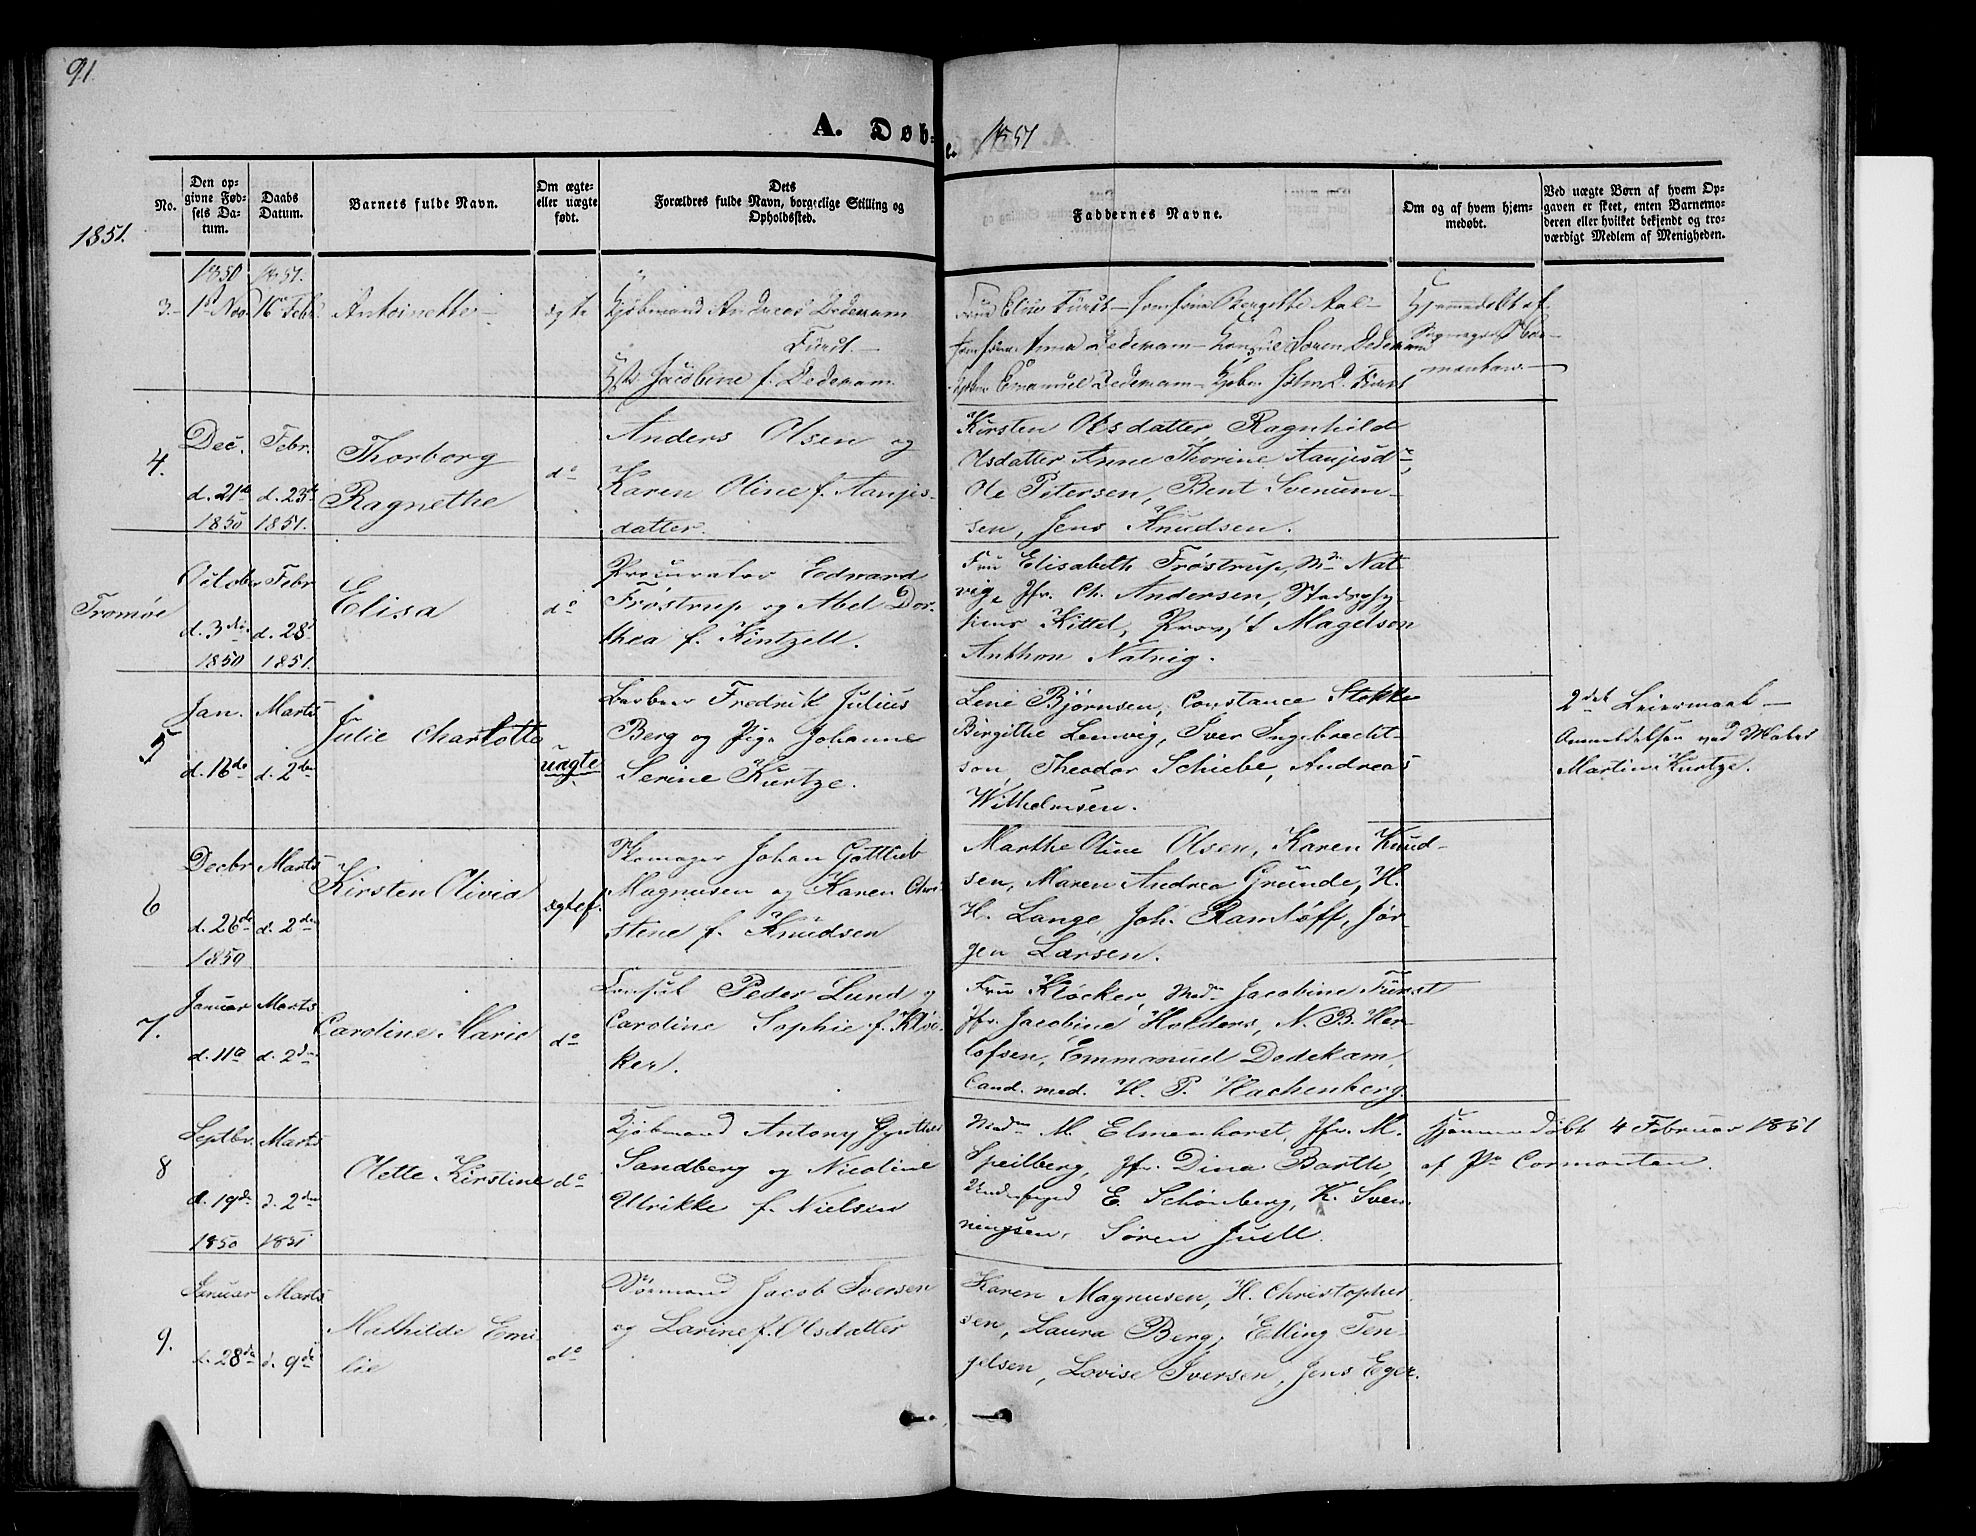 91
A. Døb-
e. 1851
No.
Den op-
givne Fød-
sels Da-
tum.
Daabs
Datum.
Barnets fulde Navn.
Om ægte-
eller uægte
født.
Dets
Forældres fulde Navn, borgerlige Stilling og
Opholdssted.
Faddernes Navne.
Om og af hvem hjem-
medøbt.
Ved uægte Børn af hvem Op-
gaven er skeet, enten Barnemo-
deren eller hvilket bekjendt og tro-
værdigt Medlem af Menigheden.
1851.
1850 1851.
3. 1ste Nov 16de Febr Antoinette ægte Kjøbmand Andreas Dedekam
Fürst
Jacobine f. Dedekam
Fru Elise Fürst Jomfrue Bergithe Aal
Jomfrue Anna Dedekam Consul Søren Dedekam
Emanuel Dedekam
Hjemmedøbt af
4.
Dec.
d. 21de
1850
Febr.
d. 23de
1851.
Thorborg
Ragnethe
do
Anders Olsen og
Karen Oline f. Aanjes-
datter.
Kirsten Olsdatter Ragnhild
Olsdatter Anne Thorine Aanjesdr,
Ole Petersen, Bent Svenum-
sen, Jens Knudsen.
Tromøe
October
d. 3die
1850
Febr
d. 28d
1851.
Elisa
do
Procurator Edward
Frøstrup og Abel Dor-
thea f. Kintzell.
Fru Elisabeth Frøstrup, Mdm Nat-
vig, Jfr. Ch. Andersen, Stadsphy-
sicus Kittel, Provst Magelson
Anthon Natvig.
5
Jan.
d. 16de
Marts
d. 2den
Julie Charlotte
uægte
Barbeer Fredrik Julius
Berg og Pige Johanne
Serine Kurtze.
Lene Bjørnsen, Constance Stokke
Birgithe Lemvig, Iver Ingebrecht-
son, Theodor Schiebe, Andreas
Wilhelmsen.
2det Leiermaal
Anmeldelsen ved
Martin Kurtze.
6
Decbr
d. 26de
1850.
Marts
d. 2den
Kirsten Olivia
ægtef.
Skomager Johan Gottlieb
Magnusen og Karen Chri-
stene f. Knudsen
Marthe Oline Olsen, Karen Knud-
sen, Maren Andrea Grunde, H.
H. Lange, Joh. Ramløff, Jør-
gen Larsen.
7.
Januar
d. 11te
Marts
d. 2den
Caroline Marie
do
Consul Peder Lund og
Caroline Sophie f. Kløc-
ker.
Fru Kløcker, Mdm Jacobine Fürst
Jfr. Jacobine Holders, N. B. Her-
lofsen, Emmanuel Dedekam,
Cand. med. H. P. Hachenberg.
8
Septbr.
d. 19de
1850
Marts
d. 2den
1851
Olette Kirstine
do
Kjøbmand Antony Gyuthes
Sandberg og Nicoline
Ulrikke f. Nielsen
Mdm M. Elmenhorst, Jfr. M.
Speilberg, Jfr. Dina Barth,
E. Schønberg, K. Sven-
ningsen, Søren Juell.
Hjemmedøbt 4 Februar 1851
af Pr. Cormontan.
9.
Januar
d. 28de
Marts
d. 9de
Mathilde Emi
lie
do
Jacob Iversen
og Larine f. Olsdatter
Karen Magnusen, H. Christopher-
sen, Laura Berg, Elling Ten-
jelsen, Lovise Iversen, Jens Eger.